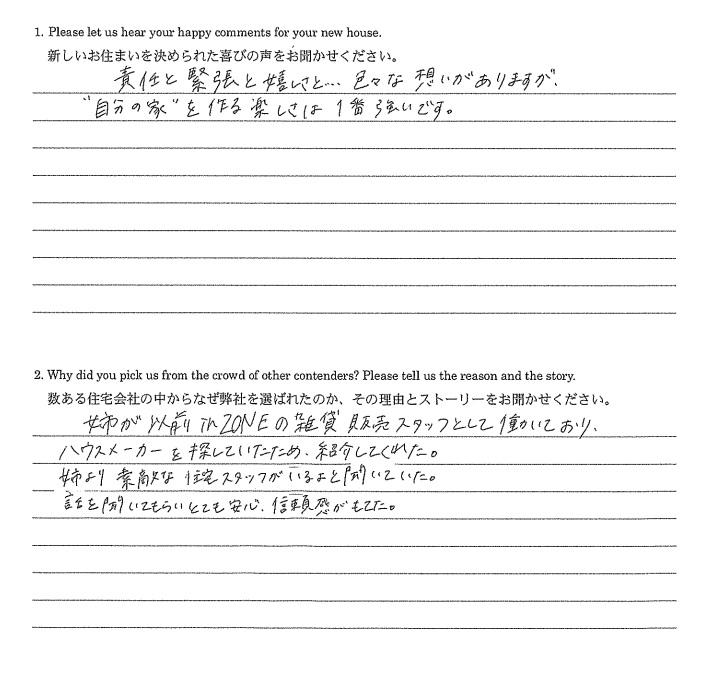 1. Please let us hear your happy comments for your new house.
新しいお住まいを決められた喜びの声をお聞かせください。
責任と緊張と嬉しさと… 色々な想いがありますが、
"自分の家"を作る楽しさは1番強いです。
2. Why did you pick us from the crowd of other contenders? Please tell us the reason and the story.
数ある住宅会社の中からなぜ弊社を選ばれたのか、その理由とストーリーをお聞かせください。
姉が以前 in ZONEの雑貨販売スタッフとして働いており、
ハウスメーカーを探していたため、紹介してくれた。
姉より素敵な住宅スタッフがいるよと聞いていた。
話を聞いてもらいとても安心、信頼感がもてた。